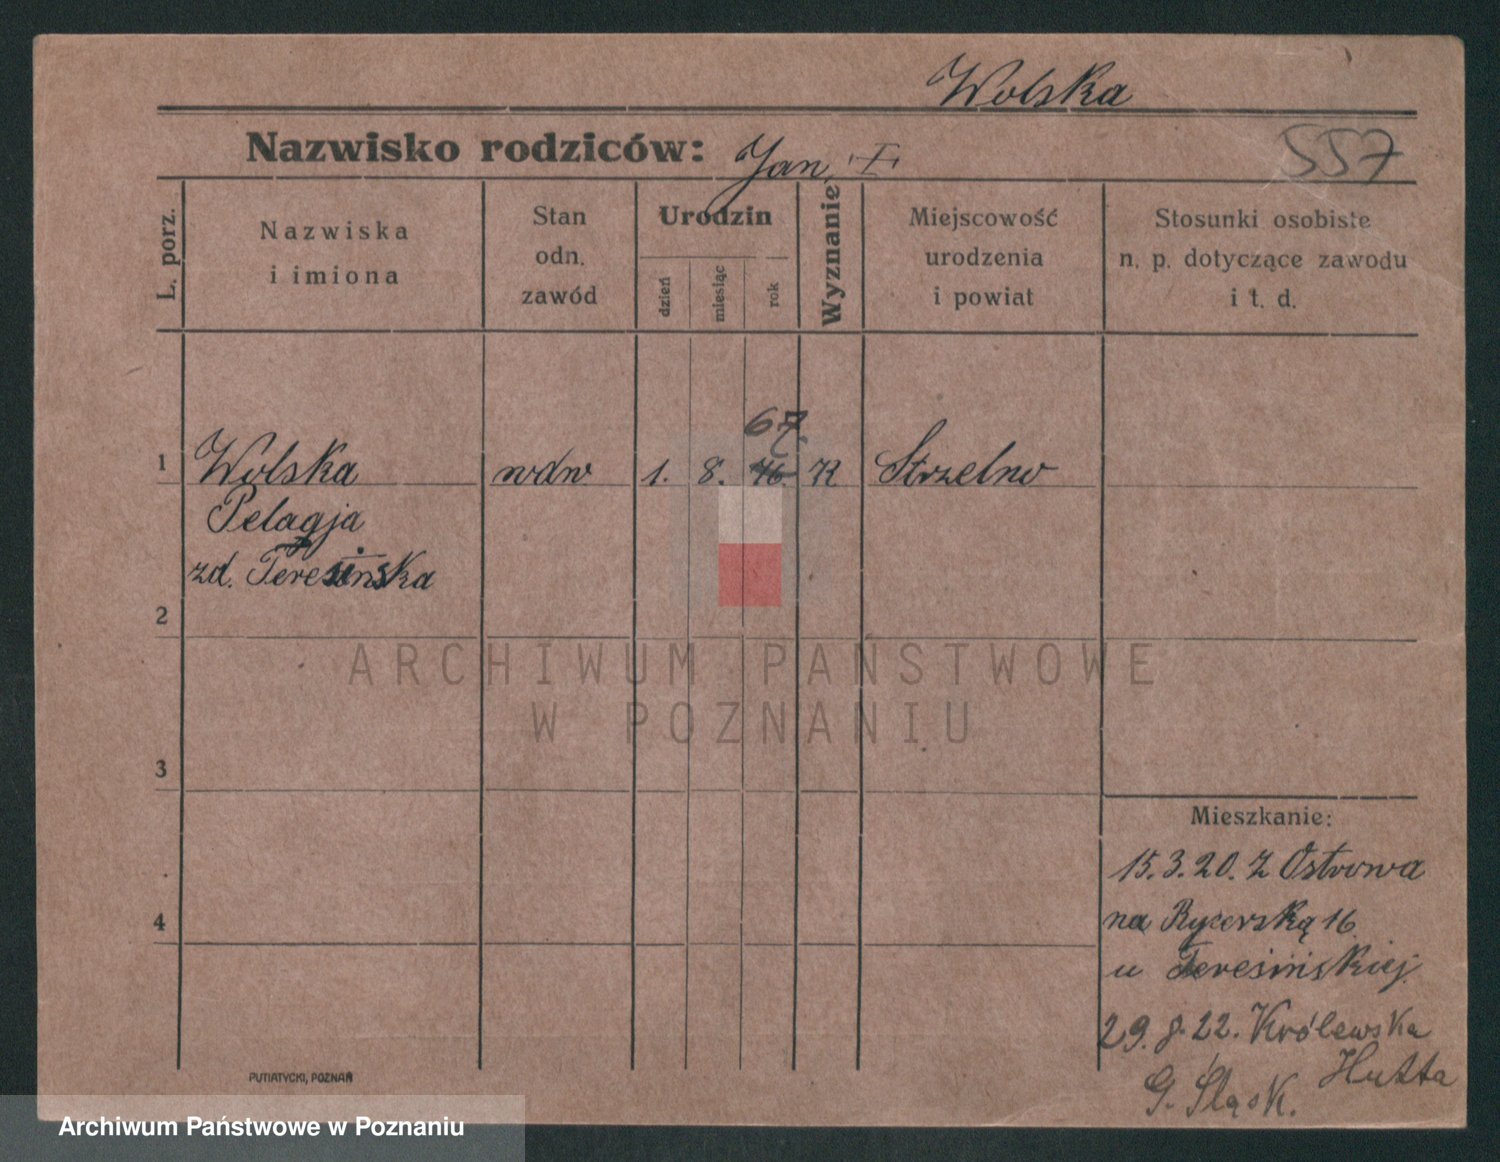 Wolska
Nazwisko rodziców: Jan, I
557
L. porz.
Nazwiska
i imiona
Stan
odn.
zawód
Urodzin
dzień
miesiąc
rok
Wyznanie
Miejscowość
urodzenia
i powiat
Stosunki osobiste
n. p. dotyczące zawodu
i t. d.
67.
1 Wolska wdw 1. 8. 76. K Strzelno
Pelagja
zd. Teresińska
2
ARCHIWUM PAŃSTWOWE
W POZNANIU
3
Mieszkanie:
15.3.20. z Ostrowa
4
na Rycerską 16.
u Teresińskiej
29.8.22. Królewska
Hutta
G. Śląsk.
PUTIATYCKI, POZNAŃ
Archiwum Państwowe w Poznaniu